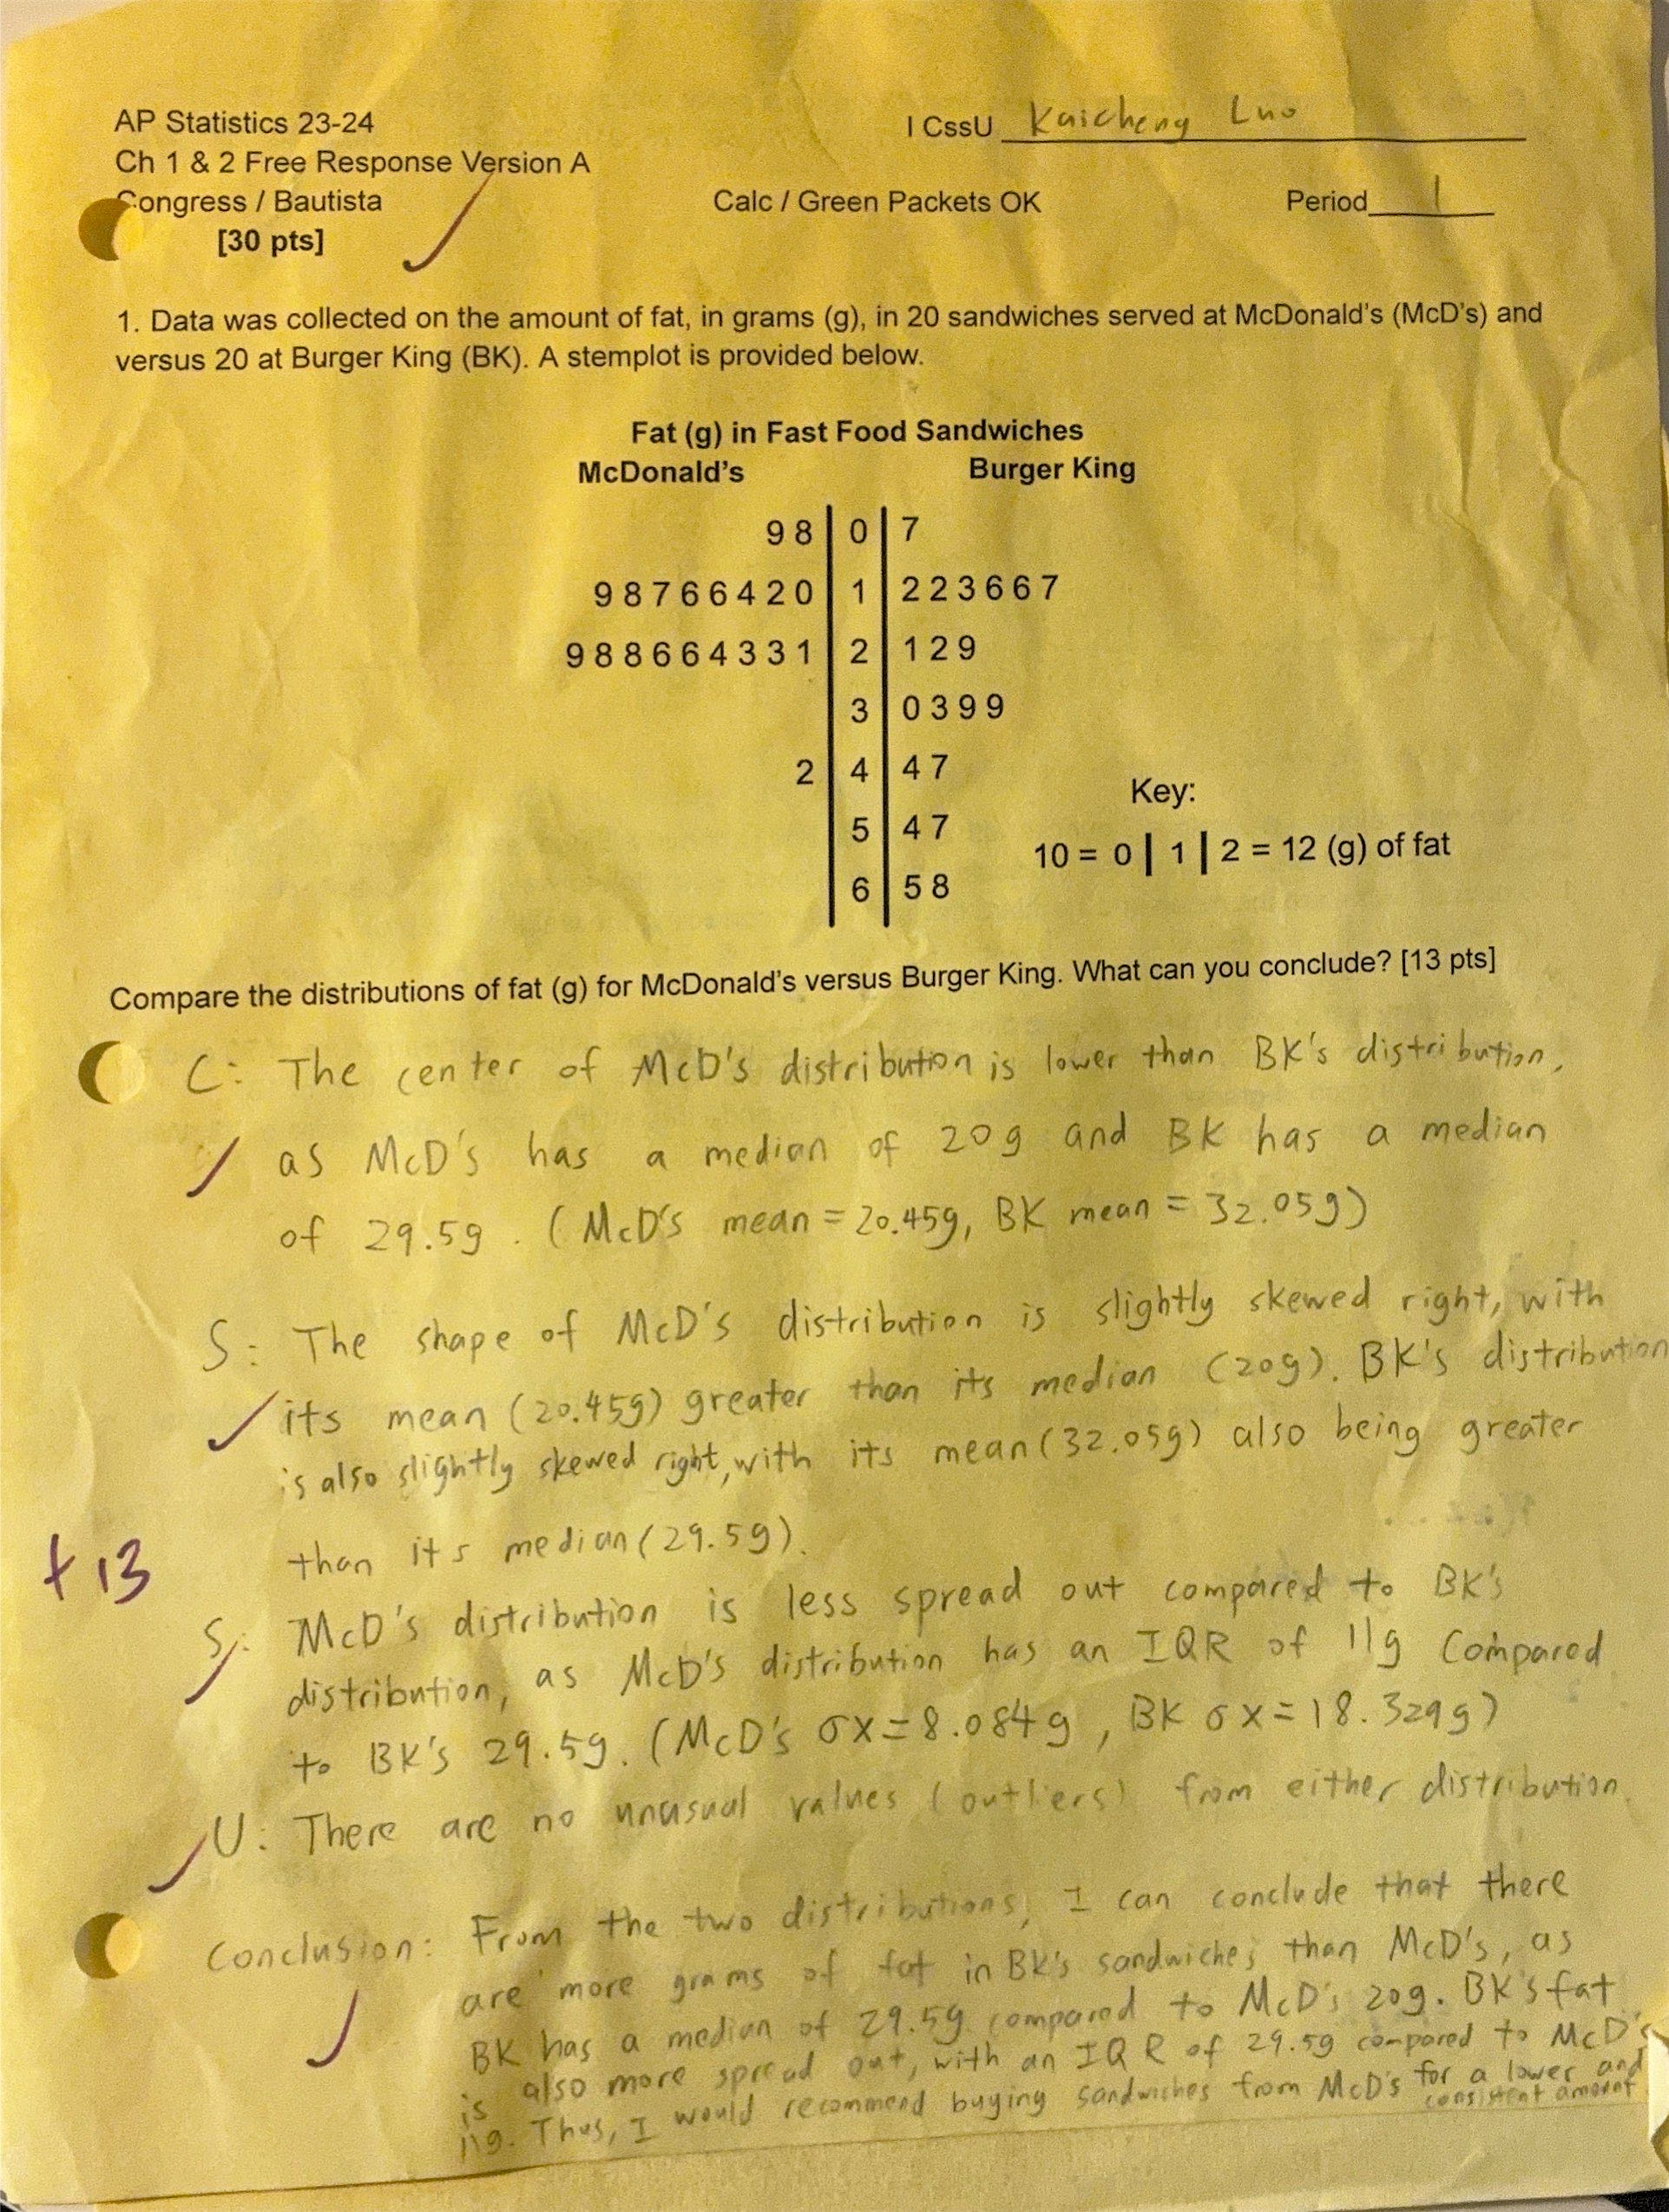 AP Statistics 23-24
I CssU Kaicheng Luo
Ch 1 & 2 Free Response Version A
Congress / Bautista
Calc / Green Packets OK
Period 1
[30 pts]
1. Data was collected on the amount of fat, in grams (g), in 20 sandwiches served at McDonald's (McD's) and
versus 20 at Burger King (BK). A stemplot is provided below.
Fat (g) in Fast Food Sandwiches
McDonald's Burger King
9 8 | 0 | 7
9 8 7 6 6 4 2 0 | 1 | 2 2 3 6 6 7
9 8 8 6 6 4 3 3 1 | 2 | 1 2 9
3 | 0 3 9 9
2 | 4 | 4 7
5 | 4 7
6 | 5 8
Key:
10 = 0 | 1 | 2 = 12 (g) of fat
Compare the distributions of fat (g) for McDonald's versus Burger King. What can you conclude? [13 pts]
C: The center of McD's distribution is lower than BK's distribution,
as McD's has a median of 20g and BK has a median
of 29.5g. (McD's mean = 20.45g, BK mean = 32.05g)
S: The shape of McD's distribution is slightly skewed right, with
its mean (20.45g) greater than its median (20g). BK's distribution
is also slightly skewed right, with its mean (32.05g) also being greater
than its median (29.5g).
+13
S: McD's distribution is less spread out compared to BK's
distribution, as McD's distribution has an IQR of 11g compared
to BK's 29.5g. (McD's σx = 8.084g, BK σx = 18.329g)
U: There are no unusual values (outliers) from either distribution.
Conclusion: From the two distributions, I can conclude that there
are more grams of fat in BK's sandwiches than McD's, as
BK has a median of 29.5g compared to McD's 20g. BK's fat
is also more spread out, with an IQR of 29.5g compared to McD's
11g. Thus, I would recommend buying sandwiches from McD's for a lower and
consistent amount